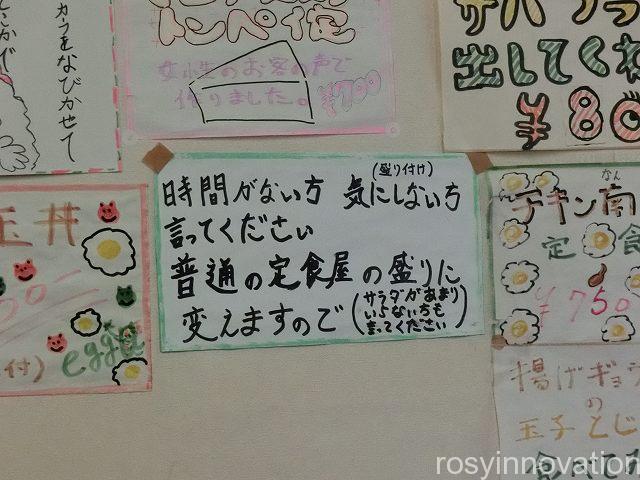 カラをなびかせて
トンペイ焼
女性のお客の声で
作りました。¥700
出してくれ
¥80
(盛り付け)
時間がない方 気にしない方
言ってください
普通の定食屋の盛りに
変えますので(サラダがあまり
いらない方も
言ってください)
玉丼
付)
eggg
なん
チキン南
定食
¥750
揚げギョウ
の
玉子とじ
食べてみ
rosyinnovation